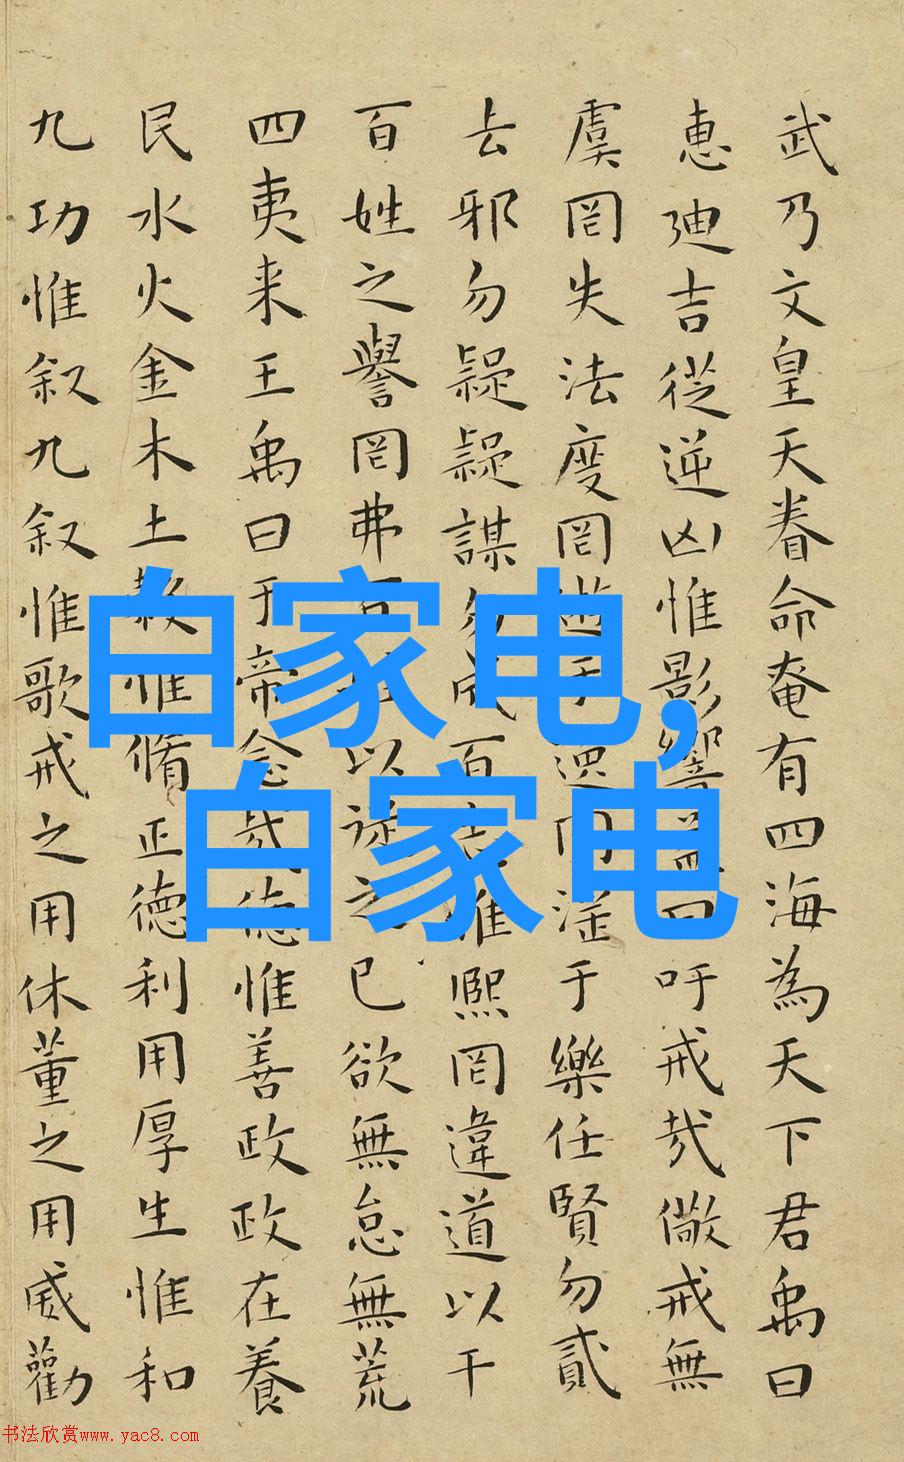 武乃文皇天眷命奄有四海為天下君禹曰
惠廸吉從逆凶惟影響益曰吁戒哉儆戒無
虞罔失法度罔遊于逸罔淫于樂任賢勿貳
去邪勿疑疑謀勿成百志惟熈罔違道以干
百姓之譽罔弗百姓以従之已欲無怠無荒
四夷来王禹曰于帝念哉德惟善政政在養
民水火金木土穀惟脩正德利用厚生惟和
九功惟叙九叙惟歌戒之用休董之用威勸
白家电,
白家电
书法欣赏www.yac8.com